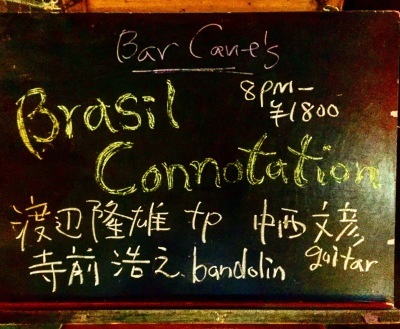 Bar Cane's
8pm-
¥1800
Brasil
Connotation
渡辺隆雄 tp 中西文彦 guitar
寺前浩之 bandolin